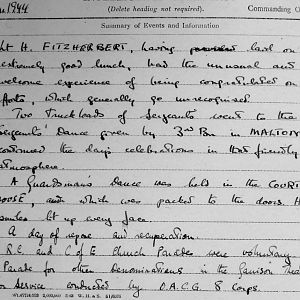 1944
(Delete heading not required).
Commanding O
Summary of Events and Information
Lt H. FITZHERBERT, having laid on
extremely good lunch, had the unusual and
welcome experience of being congratulated on
efforts, which generally go unrecognised.
Two truckloads of Sergeants went to the
Sergeants' Dance given by 3rd Bn in MALTON
continued the day's celebrations in that friendly
atmosphere.
A Guardsman's Dance was held in the COURT
HOUSE, and which was packed to the doors. H
smiles lit up every face.
A day of repose and recuperation.
R.C. and C of E Church Parades were voluntary
Parade for other Denominations in the Garrison Thea
Service conducted by D.A.C.G. 8 Corps.